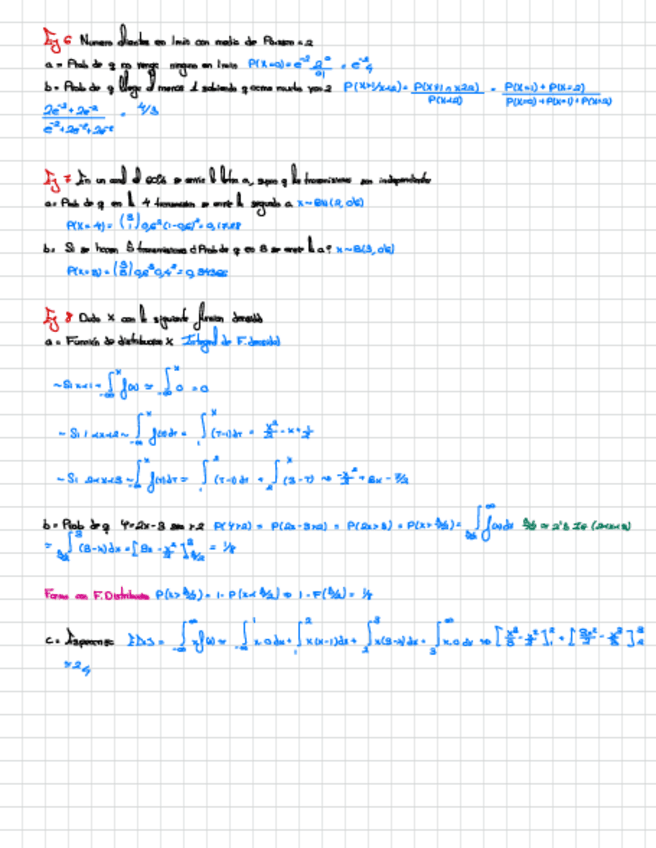 Ej 6 Numero clientes en 1min con media de Poisson = 2
a = Prob de q no venga ninguno en 1min P(X=0) = e^-2 2^0/0! = e^-2
b = Prob de q llegue al menos 1 sabiendo q como mucho van 2 P(X≥1/X≤2) = P(X≥1 ∩ X≤2)/P(X≤2) = P(X=1) + P(X=2)/P(X=0) + P(X=1) + P(X=2)
2e^-2 + 2e^-2/e^-2 + 2e^-2 + 2e^-2 = 4/5
Ej 7 En un canal al 60% se envia la letra a, supon q las transmisiones son independientes
a = Prob de q en la 4 transmision se envie la segunda a
P(X=4) = 0,6^2 (1-0,6)^2 =
b = Si se hacen transmisiones Prob de q en 3 se envie la a?
Ej 8 Dada X con la siguiente funcion densidad
a = Función de distribucion X Integral de F.densidad
~ Si x<1 ~ ∫_-∞^x f(x) = ∫_-∞^x 0 = 0
~ Si 1<x<2 ~ ∫_-∞^x f(x)dT = ∫_1^x (T-1)dT = x^2/2 - x + 1/2
~ Si 2<x<3 ~ ∫_-∞^x f(x)dT = ∫_1^2 (T-1)dT + ∫_2^x (3-T) ⇒ -x^2/2 + 3x - 7/2
b = Prob de q Y=2x-3 sea >2 P(Y>2) = P(2x-3>2) = P(2x>5) = P(x>5/2) = ∫_5/2^∞ f(x)dx
= ∫_5/2^3 (3-x)dx = [3x - x^2/2]_5/2^3 = 1/8
Forma con F.Distribucion P(x>5/2) = 1 - P(x<5/2) ⇒ 1 - F(5/2) =
c = Esperanza E[X] = ∫_-∞^∞ x f(x) = ∫_-∞^1 x·0 dx + ∫_1^2 x(x-1)dx + ∫_2^3 x(3-x)dx + ∫_3^∞ x·0 dx ⇒ [x^3/3 - x^2/2]_1^2 + [3x^2/2 - x^3/3]_2^3